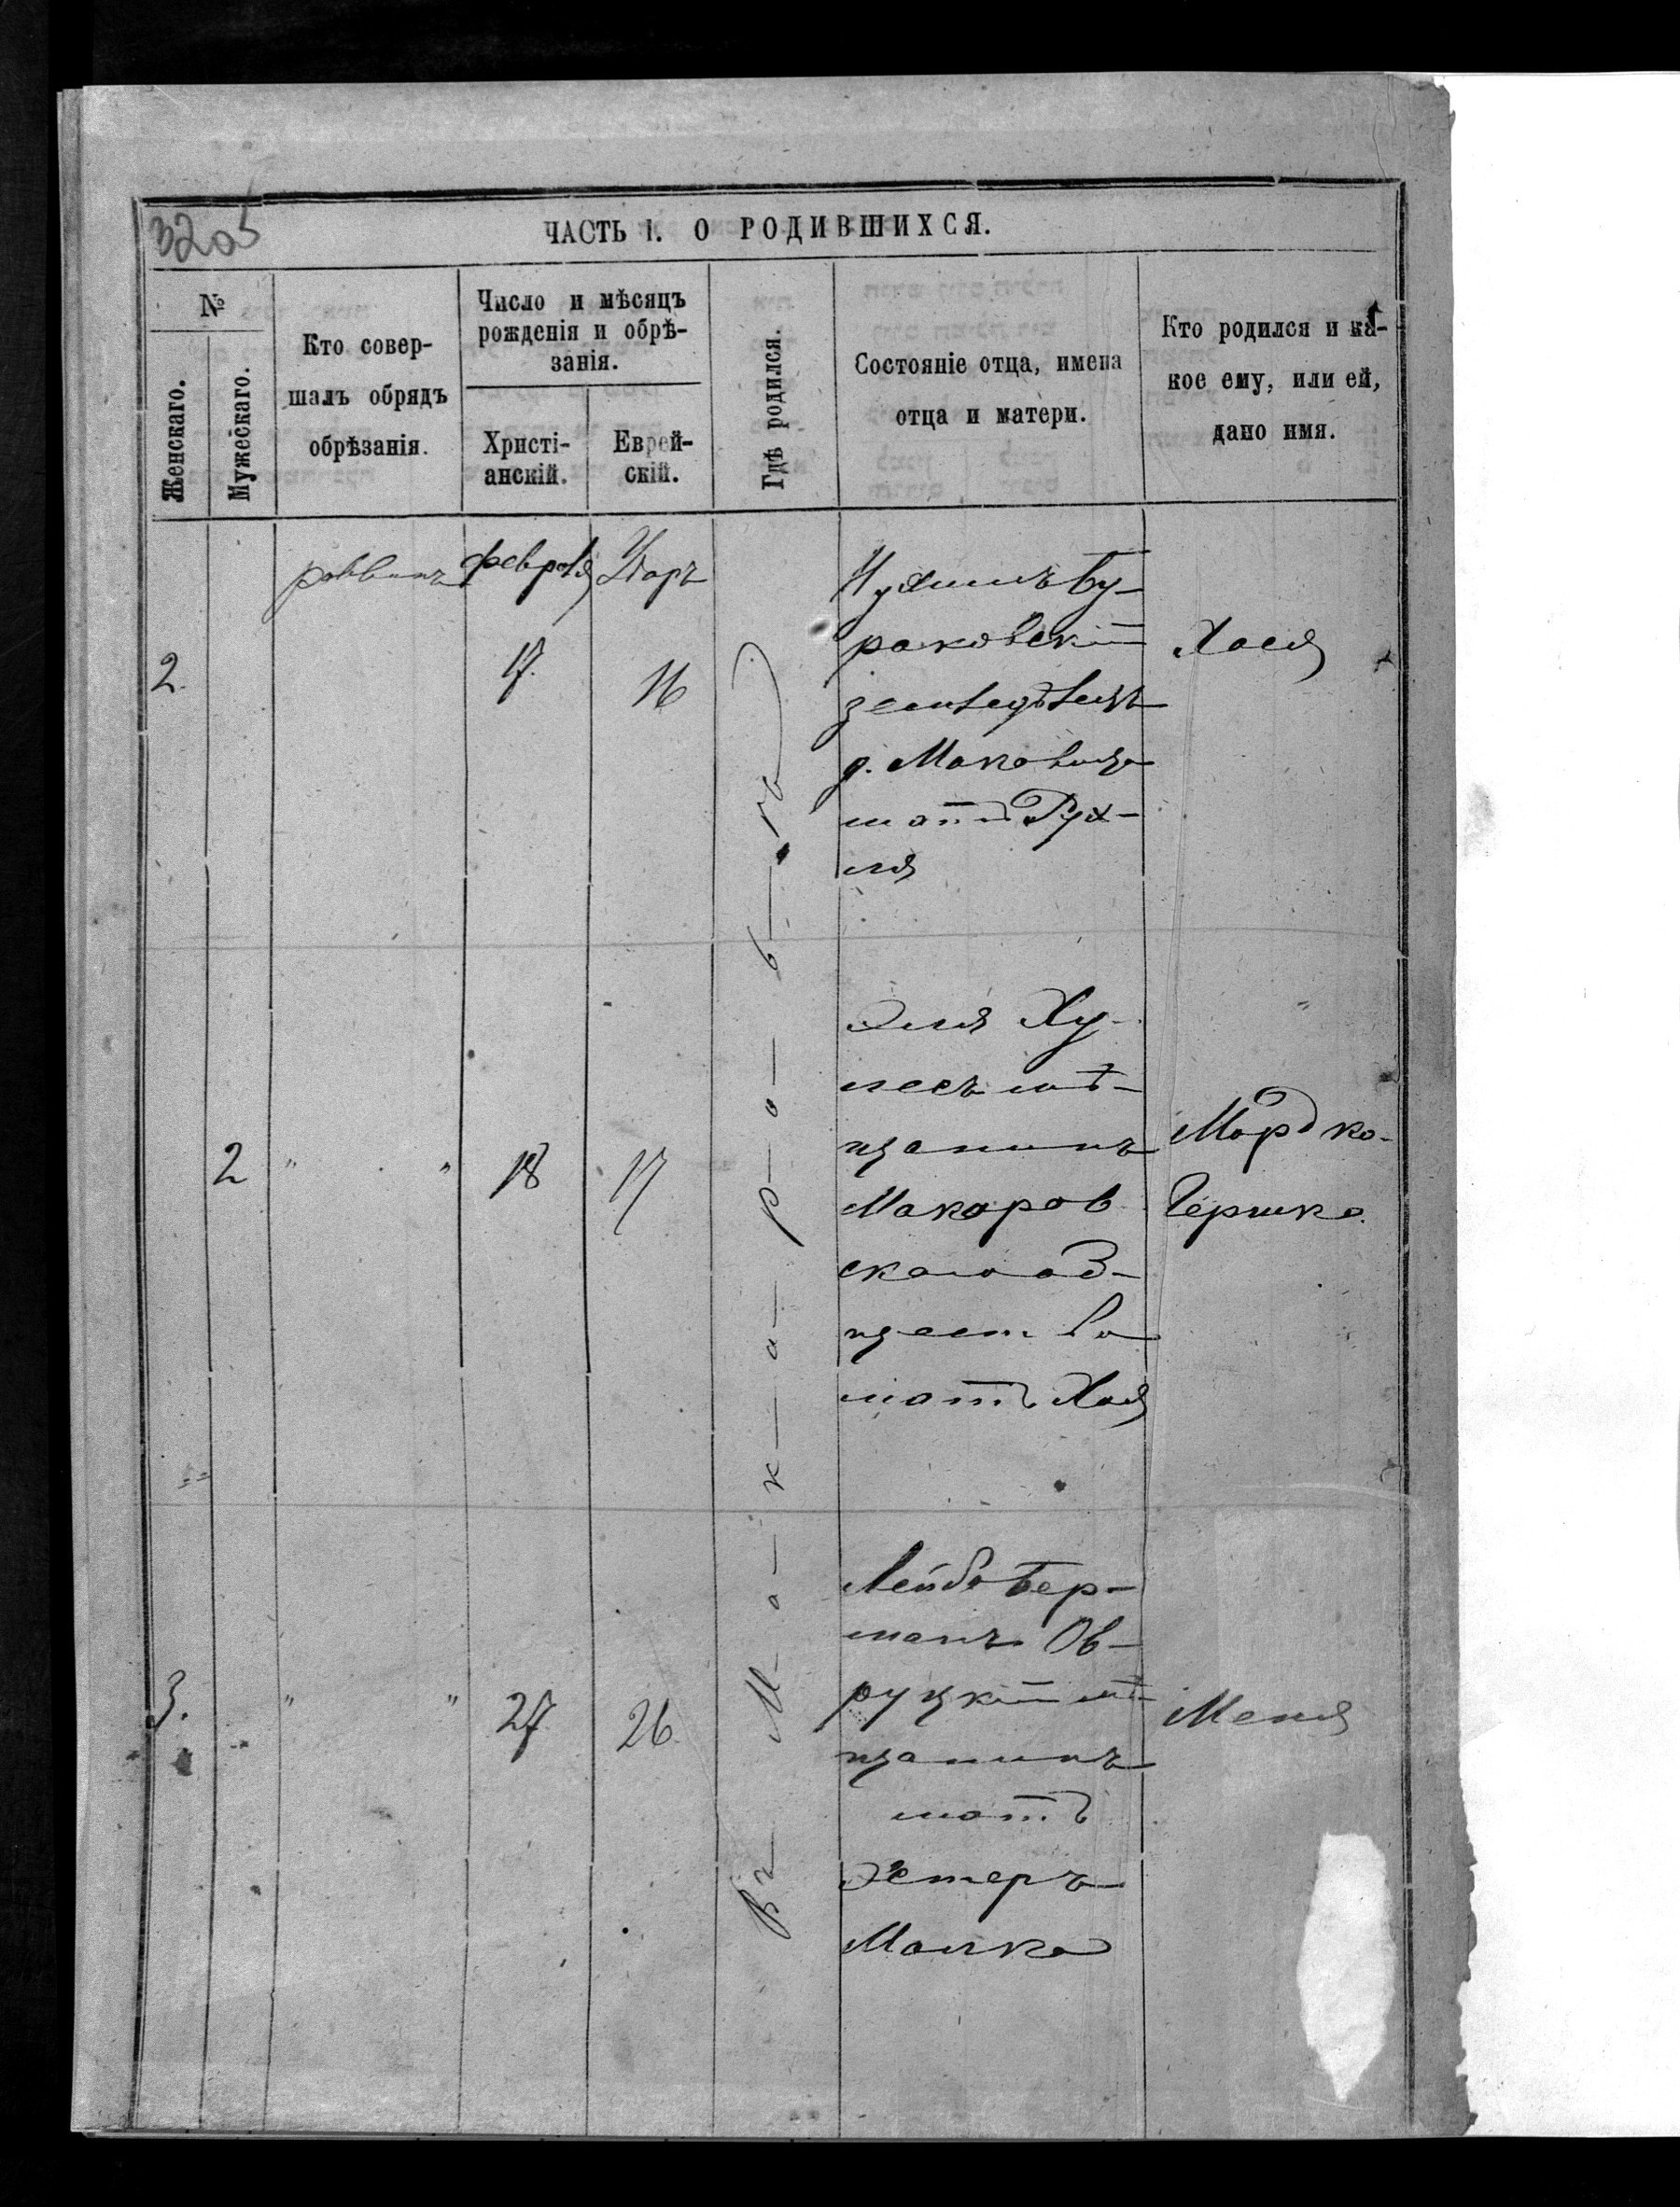 32об
ЧАСТЬ I. О РОДИВШИХСЯ.
№
Женскаго.
Мужескаго.
Кто совер-
шалъ обрядъ
обрѣзанія.
Число и мѣсяцъ
рожденія и обрѣ-
занія.
Христі-
анскій.
Еврей-
скій.
Гдѣ родился.
Состояніе отца, имена
отца и матери.
Кто родился и ка-
кое ему, или ей,
дано имя.
Въ Макаровѣ
2.
раввинъ
февраля
17.
Адаръ
16
Нухимъ Бу-
раковскій
земледѣлецъ
д. Маковища
мать Рух-
ля
Хася
2
" "
18
17
Эля Ху-
месъ мѣ-
щанинъ
Макаров
скаго об-
щества
мать Хая
Мордко-
Гершко.
3.
" "
27
26
Лейба Бер-
манъ Ов-
руцкій мѣ-
щанинъ
мать
Эстеръ
Малка
Меня